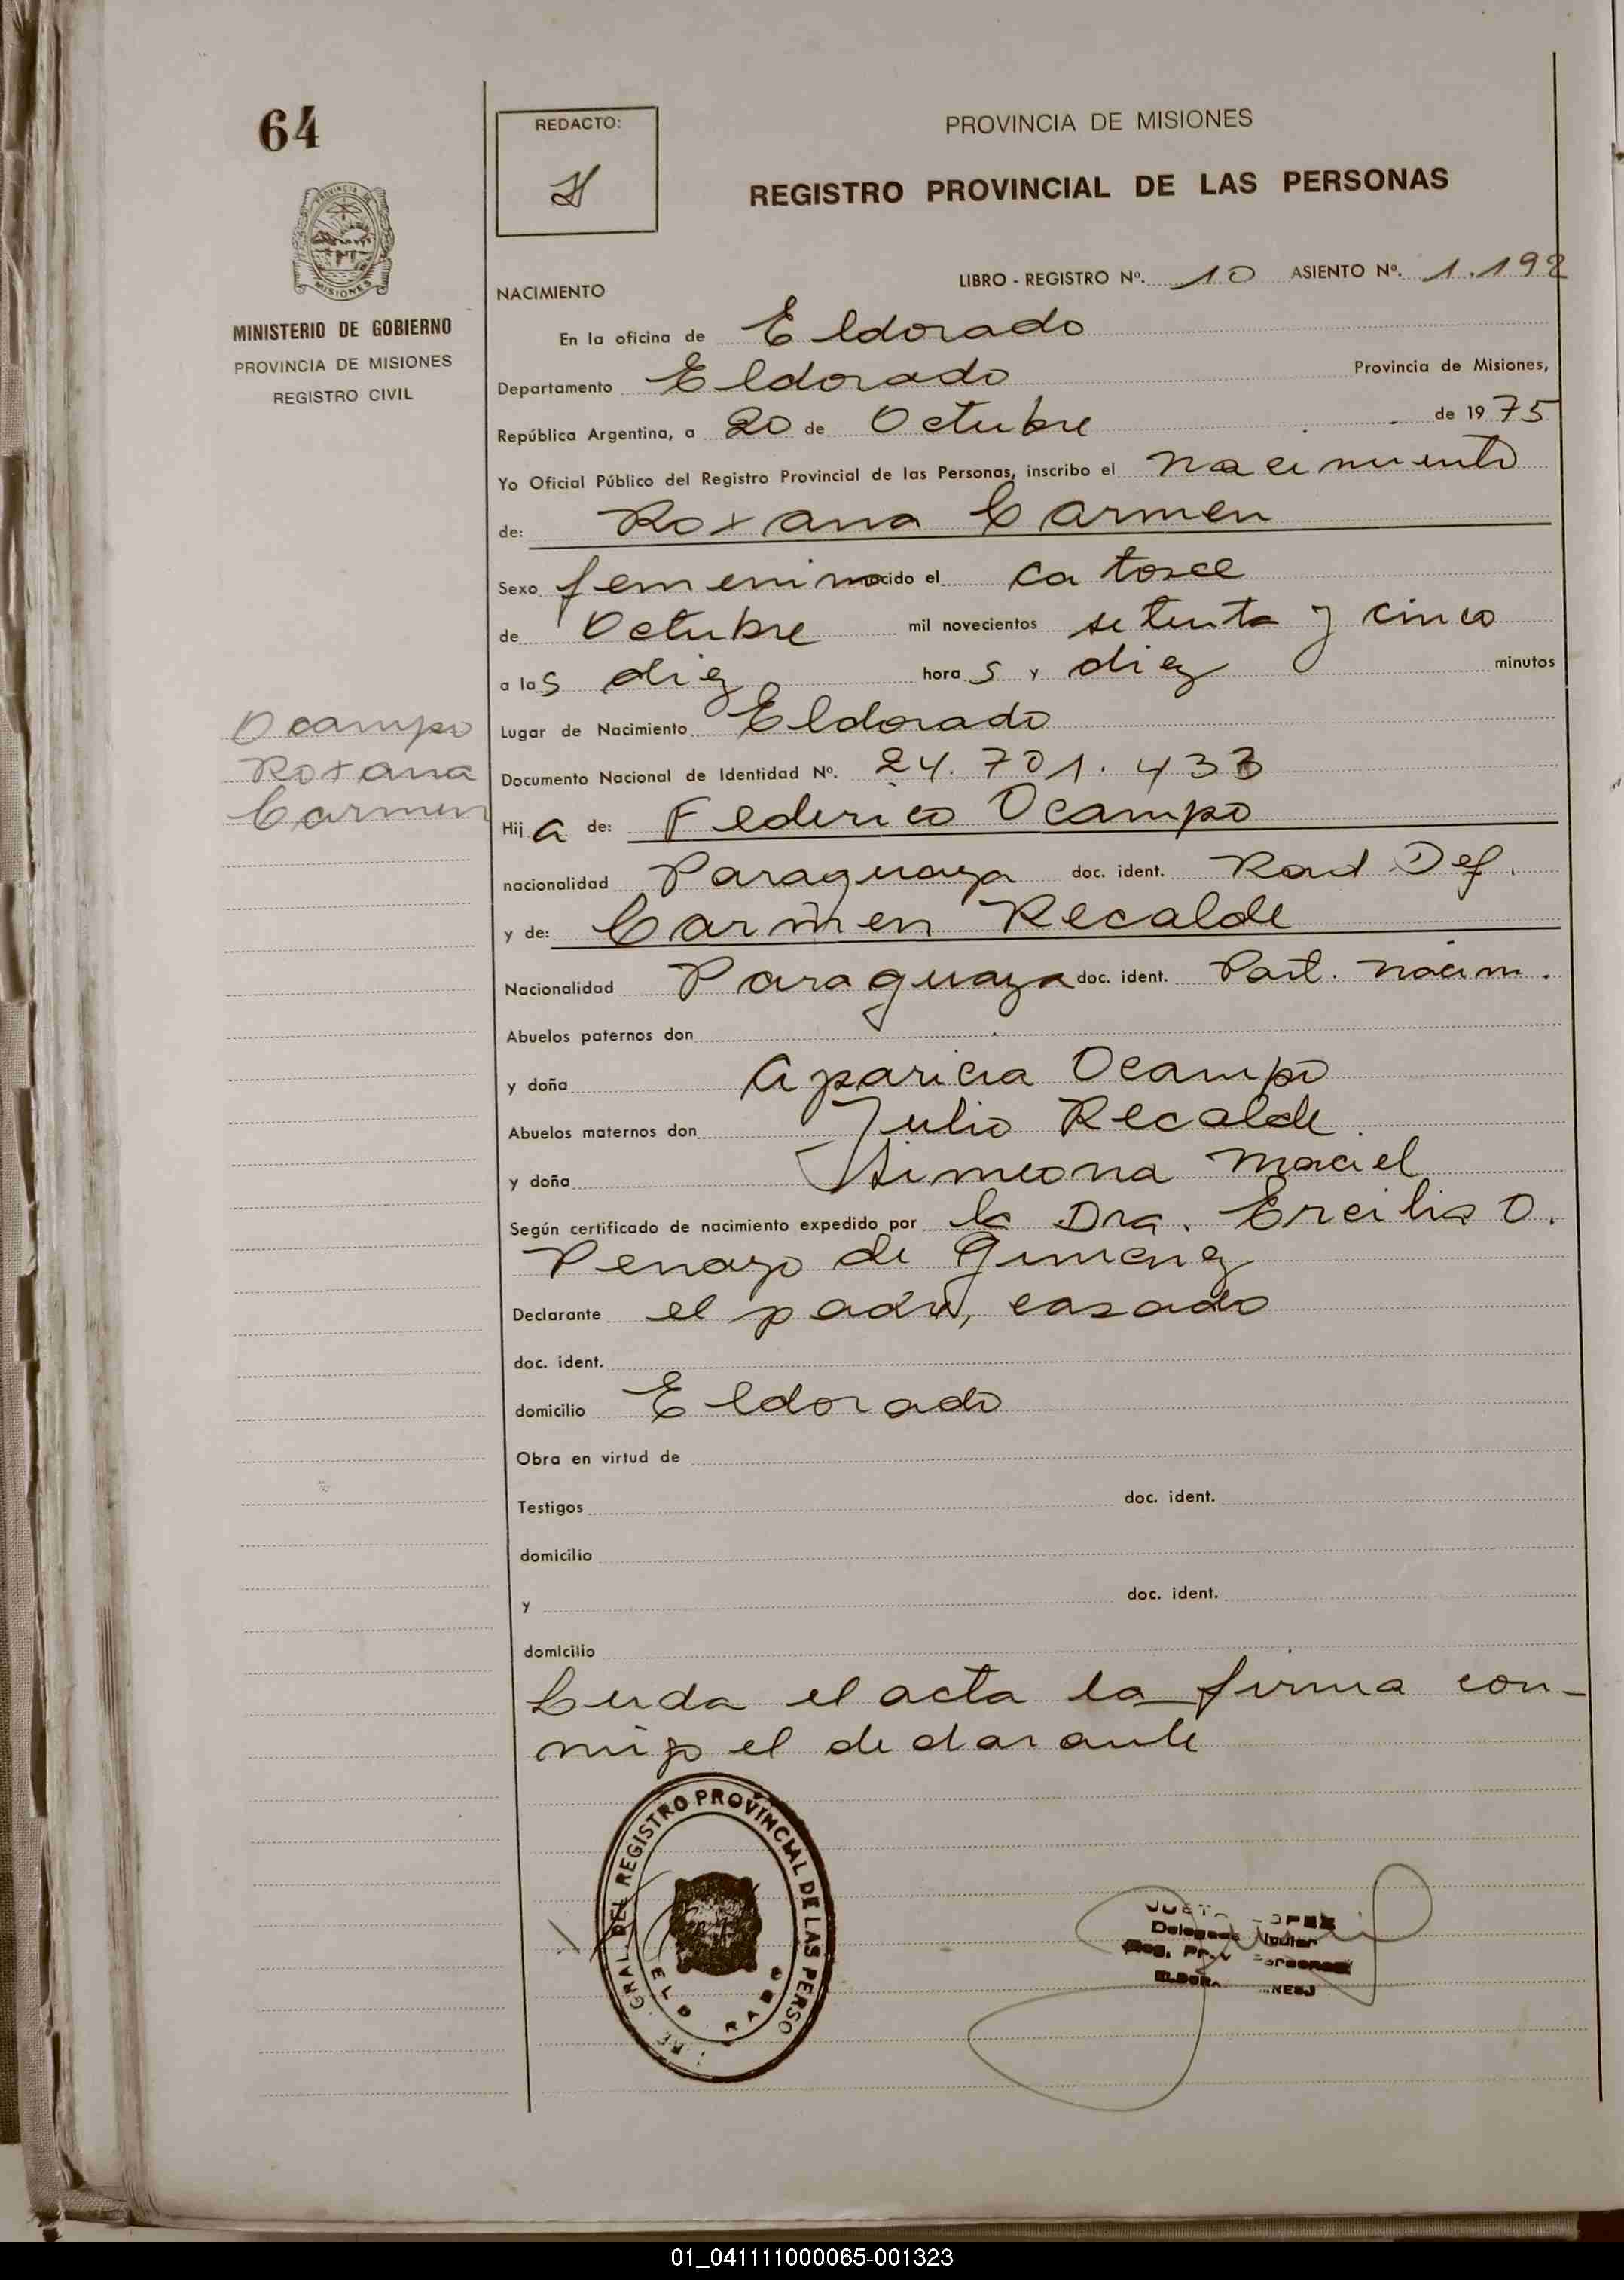 64
REDACTO:
PROVINCIA DE MISIONES
REGISTRO PROVINCIAL DE LAS PERSONAS
PROVINCIA DE
MISIONES
MINISTERIO DE GOBIERNO
PROVINCIA DE MISIONES
REGISTRO CIVIL
LIBRO - REGISTRO Nº. 10 ASIENTO Nº. 1.192
NACIMIENTO
En la oficina de Eldorado
Departamento Eldorado Provincia de Misiones,
República Argentina, a 20 de Octubre de 1975
Yo Oficial Público del Registro Provincial de las Personas, inscribo el nacimiento
de: Roxana Carmen
Sexo femenino nacido el catorce
de Octubre mil novecientos setenta y cinco
a las diez horas y diez minutos
Lugar de Nacimiento Eldorado
Documento Nacional de Identidad Nº. 24.701.433
Ocampo
Roxana
Carmen
Hija de: Federico Ocampo
nacionalidad Paraguaya doc. ident. Rad Def.
y de: Carmen Recalde
Nacionalidad Paraguaya doc. ident. Part. nacim.
Abuelos paternos don
y doña Aparicia Ocampo
Abuelos maternos don Julio Recalde
y doña Simeona Maciel
Según certificado de nacimiento expedido por la Dra. Ercilia O.
Penayo de Gimenez
Declarante el padre, casado
doc. ident.
domicilio Eldorado
Obra en virtud de
Testigos doc. ident.
domicilio
y doc. ident.
domicilio
Leida el acta la firma con-
migo el declarante
GRAL. DEL REGISTRO PROVINCIAL DE LAS PERSO
01_041111000065-001323